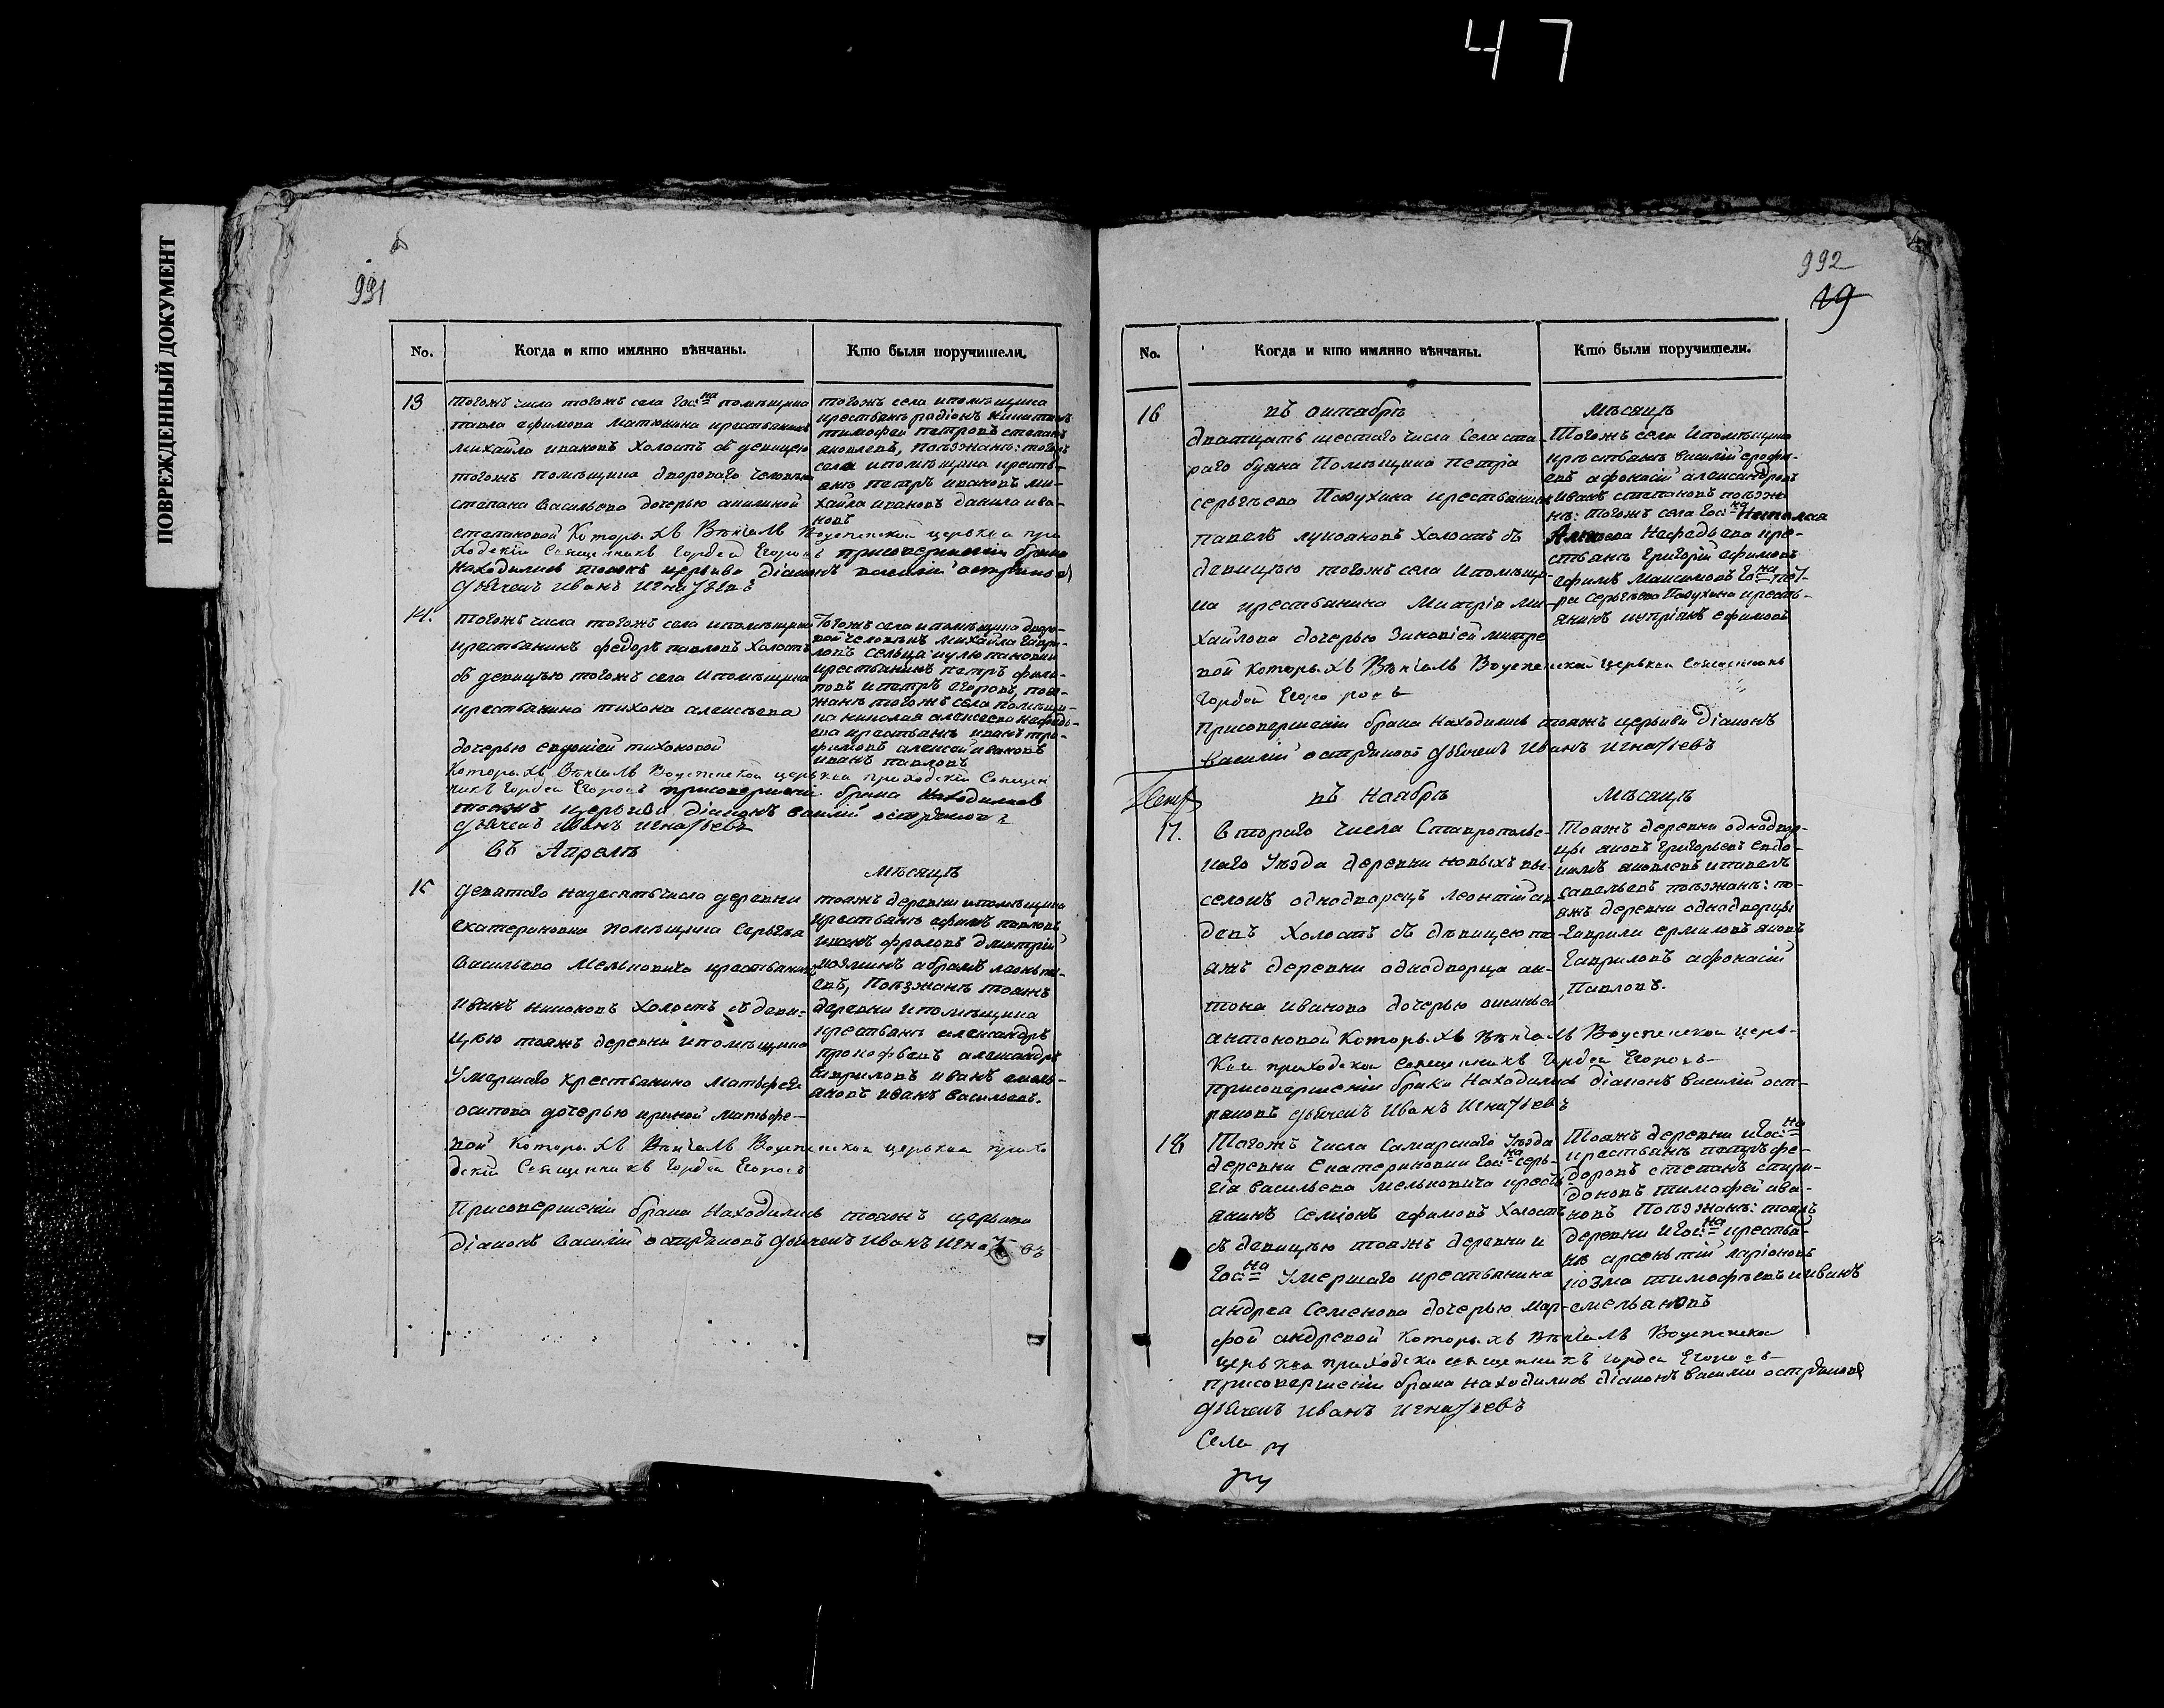 47
ПОВРЕЖДЕННЫЙ ДОКУМЕНТ
991
No.
Когда и кто имянно вѣнчаны.
Кто были поручители.
13
тогожъ числа тогожъ села Гос:на помѣщика
павла ефимова матюнина крестьянинъ
михайла ивановъ холостъ съ девицею
тогожъ помѣщика двороваго человѣка
степана васильева дочерью акилиной
степановой Которыхъ Вѣнчалъ Воуспенской церкви при
ходскій Священникъ Гордей Егоровъ присовершеніи брака
находились тоежъ церькви діаконъ василій остряковъ
дьячекъ Иванъ Игнатьевъ
тогожъ села ипомѣщика
крестьянъ радіонъ никитинъ
тимофей петровъ степанъ
яковлевъ, поѣзжанъ: тогожъ
села ипомѣщика кресть-
янъ петръ ивановъ ми-
хайла ивановъ данила ива-
новъ
14.
тогожъ числа тогожъ села ипомѣщика
крестьянинъ федоръ павловъ холостъ
съ девицью тогожъ села ипомѣщика
крестьянина тихона алексѣева
дочерью евдокіей тихоновой
Которыхъ Вѣнчалъ Воуспенской церькви приходскій Священ
никъ Гордей Егоровъ присовершеніи брака находились
тоежъ церькви діаконъ василій остряковъ
дьячекъ Иванъ Игнатьевъ
Тогожъ села ипомѣщика дворо-
вой человѣкъ михайла гаври-
ловъ сельца
крестьянинъ петръ фили-
повъ ипетръ егоровъ, поез-
жанъ тогожъ села помѣщи-
ка николая алексеева нефедь-
ева крестьянъ иванъ тро-
фимовъ алексей ивановъ
иванъ павловъ
въ Апрелѣ
мѣсяцѣ
15
девятого надесять числа деревни
екатериновки помѣщика Серьгѣя
васильева Мельковича крестьянинъ
иванъ никоновъ холостъ съ деви-
цью тоежъ деревни ипомѣщика
Умершаго крестьянина матьфея
осипова дочерью ириной матьфе-
вой Которыхъ Вѣнчалъ Воуспенской церькви прихо
дскій Священникъ Гордей Егоровъ
Присовершеніи брака Находились тоежъ церькви
діаконъ василій остряковъ дьячекъ Иванъ Игнатьевъ
тоежъ деревни ипомѣщика
крестьянъ ефимъ павловъ
иванъ фроловъ дмитрій
козминъ абрамъ леонтьи-
евъ, Поѣзжанъ тоежъ
деревни ипомѣщика
крестьянъ александръ
прокофьевъ александръ
гавриловъ иванъ емель-
яновъ иванъ васильевъ.
992
19
No.
Когда и кто имянно вѣнчаны.
Кто были поручители.
16
въ октябрѣ
мѣсяцѣ
дватцать шестаго числа Села ста-
раго буяна Помѣщика петріа
серьгѣева Пазухина крестьянинъ
павелъ лукояновъ холостъ съ
девицью тогожъ села ипомѣщи-
ка крестьянина Митріа ми-
хайлова дочерью Зиновіей митре
вой Которыхъ Вѣнчалъ Воуспенской церькви Священникъ
Гордей Егоровъ
Присовершеніи брака находились тоежъ церькви діаконъ
василій остряковъ дьячекъ Иванъ Игнатьевъ
Тогожъ села Ипомѣщика
крѣстьянъ василій ерофи-
евъ афонасій александровъ
иванъ степановъ поѣзжа
нъ: тогожъ села Гос:на Николая
Алексеева Нефедьева кре-
стьянъ григорій ефимовъ
ефимъ максимовъ Го:на пет-
ра серьгѣева Пазухина кресть-
янинъ купріянъ ефимовъ
въ Ноябрѣ
Мѣсяцѣ
17.
втораго числа Ставрополь-
скаго Уѣзда деревни новыхъ вы-
селокъ однодворецъ леонтій
девъ холостъ съ дѣвицею то-
яжъ деревни однодворца ан-
тона иванова дочерью аксиньею
антоновой Которыхъ Вѣнчалъ Воуспенской церь-
Кви приходской Священникъ Гордей Егоровъ
присовершеніи брака Находились діаконъ василій ост-
ряковъ дьячекъ Иванъ Игнатьевъ
Тояжъ деревни однодвор-
цы яковъ григорьевъ евдо-
кимъ яковлевъ ипавелъ
савельевъ поѣзжанъ: то-
яжъ деревни однодворцы
Гаврили ермиловъ яковъ
Гавриловъ афонасій
Павловъ.
18
Тогожъ числа Самарскаго Уѣзда
деревни Екатериновки Гос:на серь-
гія васильева мельковича кресть-
янинъ семіонъ ефимовъ холостъ
съ девицью тояжъ деревни и
Гос:на Умершаго крестьянина
андрея Семенова дочерью мар-
фой андревой Которыхъ Вѣнчалъ Воуспенской
церькви приходски священникъ Гордей Егоровъ
присовершеніи брака находились діаконъ василій остряковъ
дьячекъ Иванъ Игнатьевъ
Тояжъ деревни иГос:на
крестьянъ петръ фе-
доровъ степанъ спири-
доновъ тимофей ива-
новъ Поѣзжанъ: тояжъ
деревни иГос:на крестья-
нъ арсентій ларіоновъ
козма тимофѣевъ ииванъ
емельяновъ
Села